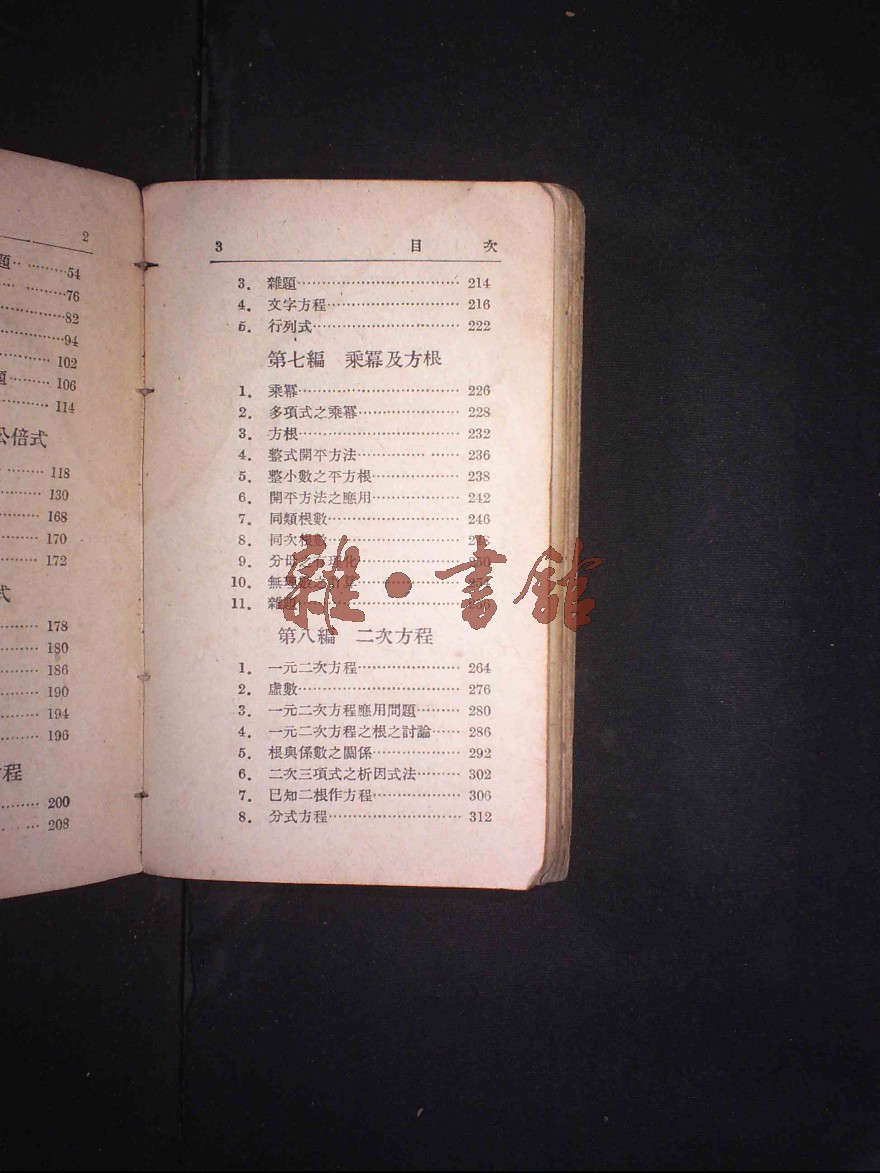 2
題 54
76
82
94
102
題 106
114
公倍式
118
130
168
170
172
式
178
180
186
190
194
196
程
200
208
3 目 次
3. 雜題 214
4. 文字方程 216
5. 行列式 222
第七編 乘冪及方根
1. 乘冪 226
2. 多項式之乘冪 228
3. 方根 232
4. 整式開平方法 236
5. 整小數之平方根 238
6. 開平方法之應用 242
7. 同類根數 246
8. 同次根數
9. 分母之有理化 250
10. 無理數之計算
11. 雜題
雜·書館
第八編 二次方程
1. 一元二次方程 264
2. 虛數 276
3. 一元二次方程應用問題 280
4. 一元二次方程之根之討論 286
5. 根與係數之關係 292
6. 二次三項式之析因式法 302
7. 已知二根作方程 306
8. 分式方程 312